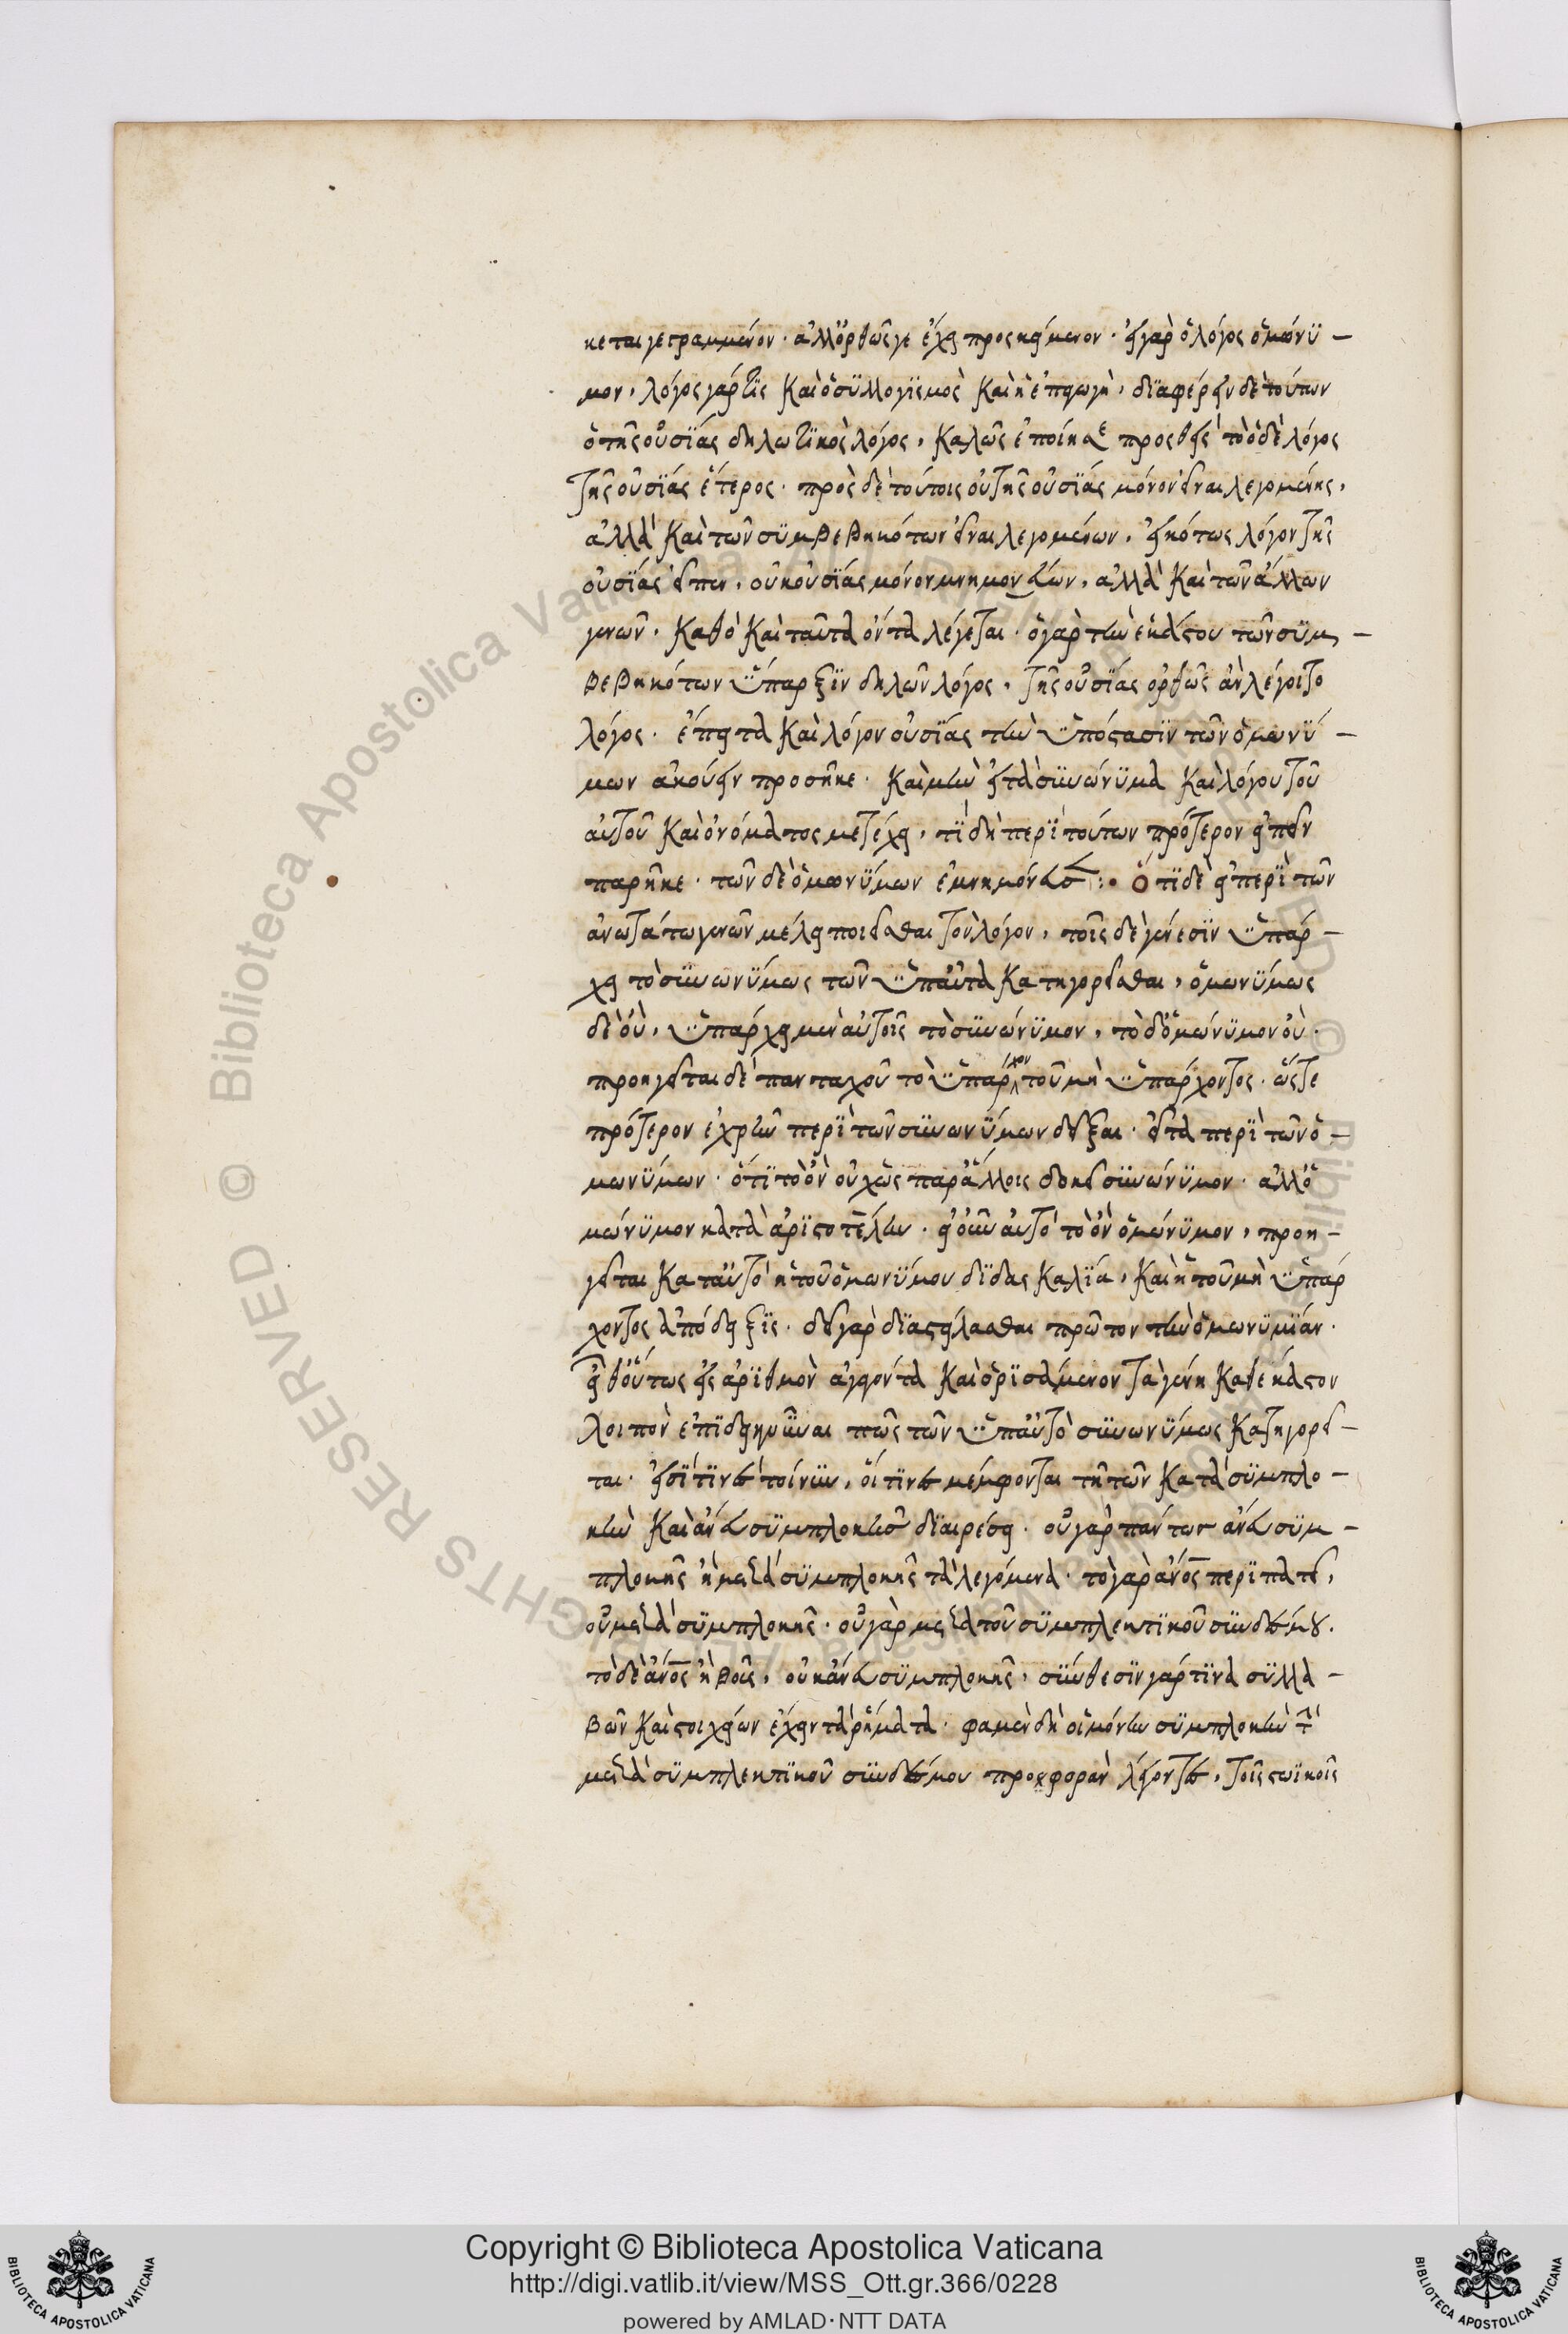 κεται γεγραμμένον. ἀλλ' ὀρθῶς γε ἔχει προσκείμενον. εἰ γὰρ ὁ λόγος ὁμώνυ-
μον, λόγος γάρ τις καὶ ὁ συλλογισμὸς καὶ ἡ ἐπαγωγὴ, διαφέρειν δὲ τούτων
ὁ τῆς οὐσίας δηλωτικὸς λόγος, καλῶς ἐποίησε προσθεὶς τὸ ὁ δὲ λόγος
τῆς οὐσίας ἕτερος. πρὸς δὲ τούτοις οὐ τῆς οὐσίας μόνον εἶναι λεγομένης,
ἀλλὰ καὶ τῶν συμβεβηκότων εἶναι λεγομένων, εἰκότως λόγον τῆς
οὐσίας εἶπεν, οὐκ οὐσίας μόνον μνημονεύων, ἀλλὰ καὶ τῶν ἄλλων
γενῶν. καθὸ καὶ ταῦτα ὄντα λέγεται. ὁ γὰρ τὴν ἑκάστου τῶν συμ-
βεβηκότων ὕπαρξιν δηλῶν λόγος, τῆς οὐσίας ὀρθῶς ἂν λέγοιτο
λόγος. ἔπειτα καὶ λόγον οὐσίας τὴν ὑπόστασιν τῶν ὁμωνύ-
μων ἀκούειν προσῆκε. καὶ μὴν εἰ τὰ συνώνυμα καὶ λόγου τοῦ
αὐτοῦ καὶ ὀνόματος μετέχει, τί δὴ περὶ τούτων πρότερον εἰπεῖν
παρῆκε. τῶν δὲ ὁμωνύμων ἐμνημόνευσε:· Ὅτι δὲ εἰ περὶ τῶν
ἀνωτάτω γενῶν μέλει ποιεῖσθαι τὸν λόγον, τοῖς δὲ γένεσιν ὑπάρ-
χει τὸ συνωνύμως τῶν ὑπ' αὐτὰ κατηγορεῖσθαι, ὁμωνύμως
δὲ οὐ, ὑπάρχει μὲν αὐτοῖς τὸ συνώνυμον, τὸ δ' ὁμώνυμον οὐ.
προηγεῖται δὲ πανταχοῦ τὸ ὑπάρχον τοῦ μὴ ὑπάρχοντος. ὥστε
πρότερον ἐχρῆν περὶ τῶν συνωνύμων δεῖξαι. εἶτα περὶ τῶν ὁ-
μωνύμων. ὅτι τὸ ὂν οὐχ ὡς παρ' ἄλλοις δοκεῖ συνώνυμον. ἀλλ' ὁ
μώνυμον κατὰ ἀριστοτέλην. εἰ οὖν αὐτὸ τὸ ὂν ὁμώνυμον, προη-
γεῖται κατ' αὐτὸ ἡ τοῦ ὁμωνύμου διδασκαλία, καὶ ἡ τοῦ μὴ ὑπάρ
χοντος ἀπόδειξις. δεῖ γὰρ διαστείλασθαι πρῶτον τὴν ὁμωνυμίαν.
εἶθ' οὕτως εἰς ἀριθμὸν ἀγαγόντα καὶ ὁρισάμενον τὰ γένη καθ' έκαστον
λοιπὸν ἐπιδειγνῦναι πῶς τῶν ὑπ' αὐτὸ συνωνύμως κατηγορεῖ-
ται. εἰσί τινες τοίνυν, οἵ τινες μέμφονται τῇ τῶν κατὰ συμπλο-
κὴν καὶ ἄνευ συμπλοκῆς διαιρέσει. οὐ γὰρ πάντως ἄνευ συμ-
πλοκῆς ἢ μετὰ συμπλοκῆς τὰ λεγόμενα. τὸ γὰρ ἄνος περιπατεῖ,
οὐ μετὰ συμπλοκῆς. οὐ γὰρ μετὰ τοῦ συμπλεκτικοῦ συνδέσμου.
τὸ δὲ ἄνος ἢ βοῦς, οὐκ ἄνευ συμπλοκῆς, σύνθεσιν γάρ τινα συλλα-
βῶν καὶ στοιχείων ἔχειν τὰ ῥήματα. φαμὲν δὴ οἱ μόνην συμπλοκὴν τὴν
μετὰ συμπλεκτικοῦ συνδέσμου προφορὰν λέγοντες, τοῖς στωικοῖς
Copyright © Biblioteca Apostolica Vaticana
http://digi.vatlib.it/view/MSS_Ott.gr.366/0228
powered by AMLAD·NTT DATA